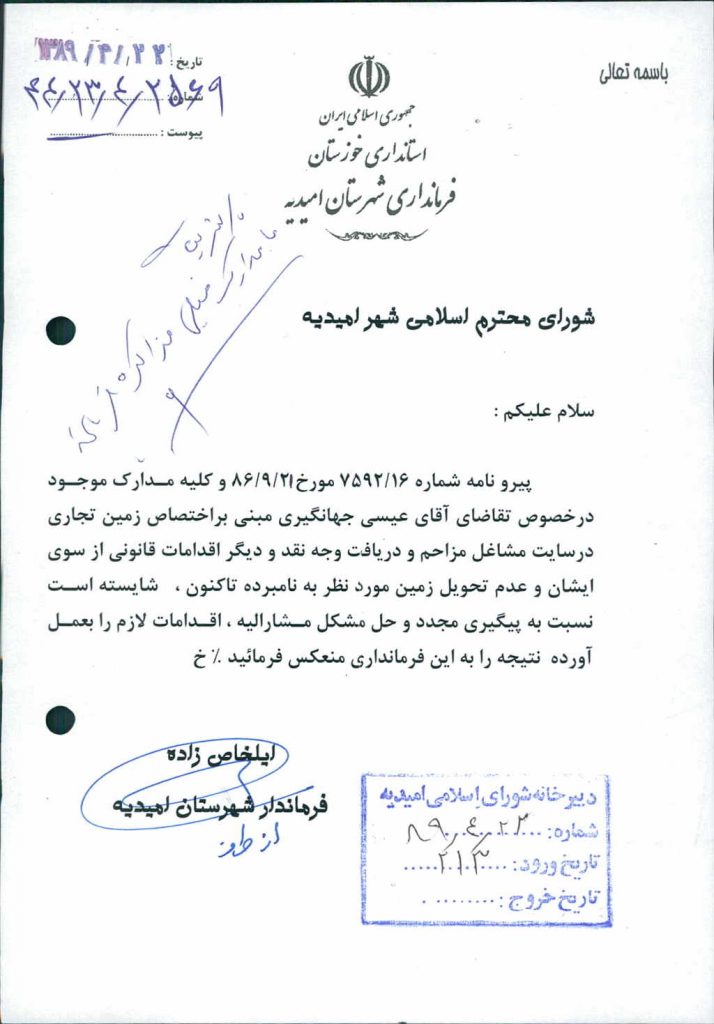 باسمه تعالی
جمهوری اسلامی ایران
استانداری خوزستان
فرمانداری شهرستان امیدیه
تاریخ :
شماره :
پیوست :
شورای محترم اسلامی شهر امیدیه
سلام علیکم :
پیرو نامه شماره ۷۵۹۲/۱۶ مورخ ۸۶/۹/۲۱ و کلیه مدارک موجود
درخصوص تقاضای آقای عیسی جهانگیری مبنی براختصاص زمین تجاری
درسایت مشاغل مزاحم و دریافت وجه نقد و دیگر اقدامات قانونی از سوی
ایشان و عدم تحویل زمین مورد نظر به نامبرده تاکنون ، شایسته است
نسبت به پیگیری مجدد و حل مشکل مشارالیه ، اقدامات لازم را بعمل
آورده نتیجه را به این فرمانداری منعکس فرمائید ٪ خ
ایلخاص زاده
فرماندار شهرستان امیدیه
از طرف
دبیرخانه شورای اسلامی امیدیه
شماره:
تاریخ ورود:
تاریخ خروج: